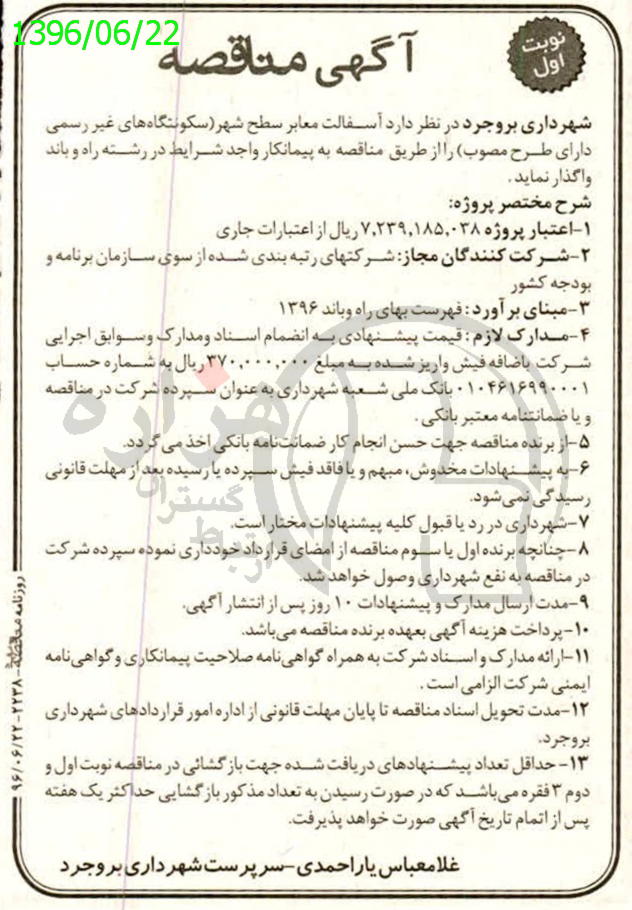 1396/06/22
نوبت
اول
آگهی مناقصه
شهرداری بروجرد در نظر دارد آسفالت معابر سطح شهر(سکونتگاه‌های غیر رسمی
دارای طرح مصوب) را از طریق مناقصه به پیمانکار واجد شرایط در رشته راه و باند
واگذار نماید.
شرح مختصر پروژه:
۱-اعتبار پروژه ۷,۲۳۹,۱۸۵,۰۳۸ ریال از اعتبارات جاری
۲-شرکت کنندگان مجاز: شرکتهای رتبه بندی شده از سوی سازمان برنامه و
بودجه کشور
۳-مبنای برآورد: فهرست بهای راه وباند ۱۳۹۶
۴-مدارک لازم: قیمت پیشنهادی به انضمام اسناد ومدارک وسوابق اجرایی
شرکت باضافه فیش واریز شده به مبلغ ۳۷۰,۰۰۰,۰۰۰ ریال به شماره حساب
۰۱۰۴۶۱۶۹۹۰۰۰۱ بانک ملی شعبه شهرداری به عنوان سپرده شرکت در مناقصه
و یا ضمانتنامه معتبر بانکی.
۵-از برنده مناقصه جهت حسن انجام کار ضمانت‌نامه بانکی اخذ می گردد.
۶-به پیشنهادات مخدوش، مبهم و یا فاقد فیش سپرده یا رسیده بعد از مهلت قانونی
رسیدگی نمی‌شود.
۷-شهرداری در رد یا قبول کلیه پیشنهادات مختار است.
۸-چنانچه برنده اول یا سوم مناقصه از امضای قرارداد خودداری نموده سپرده شرکت
در مناقصه به نفع شهرداری وصول خواهد شد.
۹-مدت ارسال مدارک و پیشنهادات ۱۰ روز پس از انتشار آگهی.
۱۰-پرداخت هزینه آگهی بعهده برنده مناقصه می‌باشد.
۱۱-ارائه مدارک و اسناد شرکت به همراه گواهی‌نامه صلاحیت پیمانکاری و گواهی‌نامه
ایمنی شرکت الزامی است.
۱۲-مدت تحویل اسناد مناقصه تا پایان مهلت قانونی از اداره امور قراردادهای شهرداری
بروجرد.
۱۳-حداقل تعداد پیشنهادهای دریافت شده جهت بازگشائی در مناقصه نوبت اول و
دوم ۳ فقره می‌باشد که در صورت رسیدن به تعداد مذکور بازگشایی حداکثر یک هفته
پس از اتمام تاریخ آگهی صورت خواهد پذیرفت.
غلامعباس یاراحمدی-سرپرست شهرداری بروجرد
روزنامه مناقصه - ۲۲۳۸ - ۹۶/۰۶/۲۲
هزاره
گستران
ارتباط